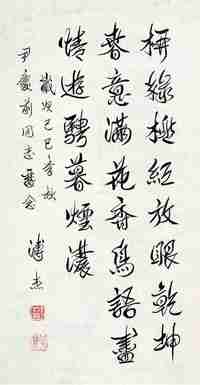 梅緑桃紅放眼乾坤
春意滿花香鳥語盡
情遊騁暮煙濃
歲次己巳季秋
尹慶前同志留念
溥杰